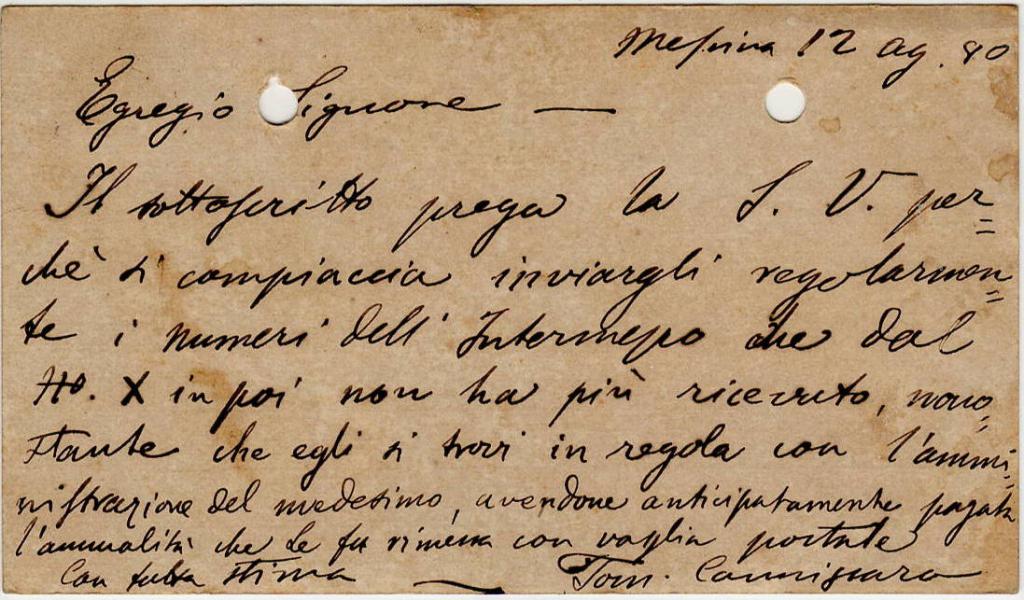 Messina 12 ag. 80
Egregio Signore —
Il sottoscritto prega la S. V. per=
chè si compiaccia inviargli regolarmen=
te i numeri dell' Intermezzo che dal
No. X in poi non ha più ricevuto, nono=
stante che egli si trovi in regola con l'ammi=
nistrazione del medesimo, avendone anticipatamente pagata
l'annualità che Le fu rimessa con vaglia postale
Con tutta stima — Tom. Cannizzaro